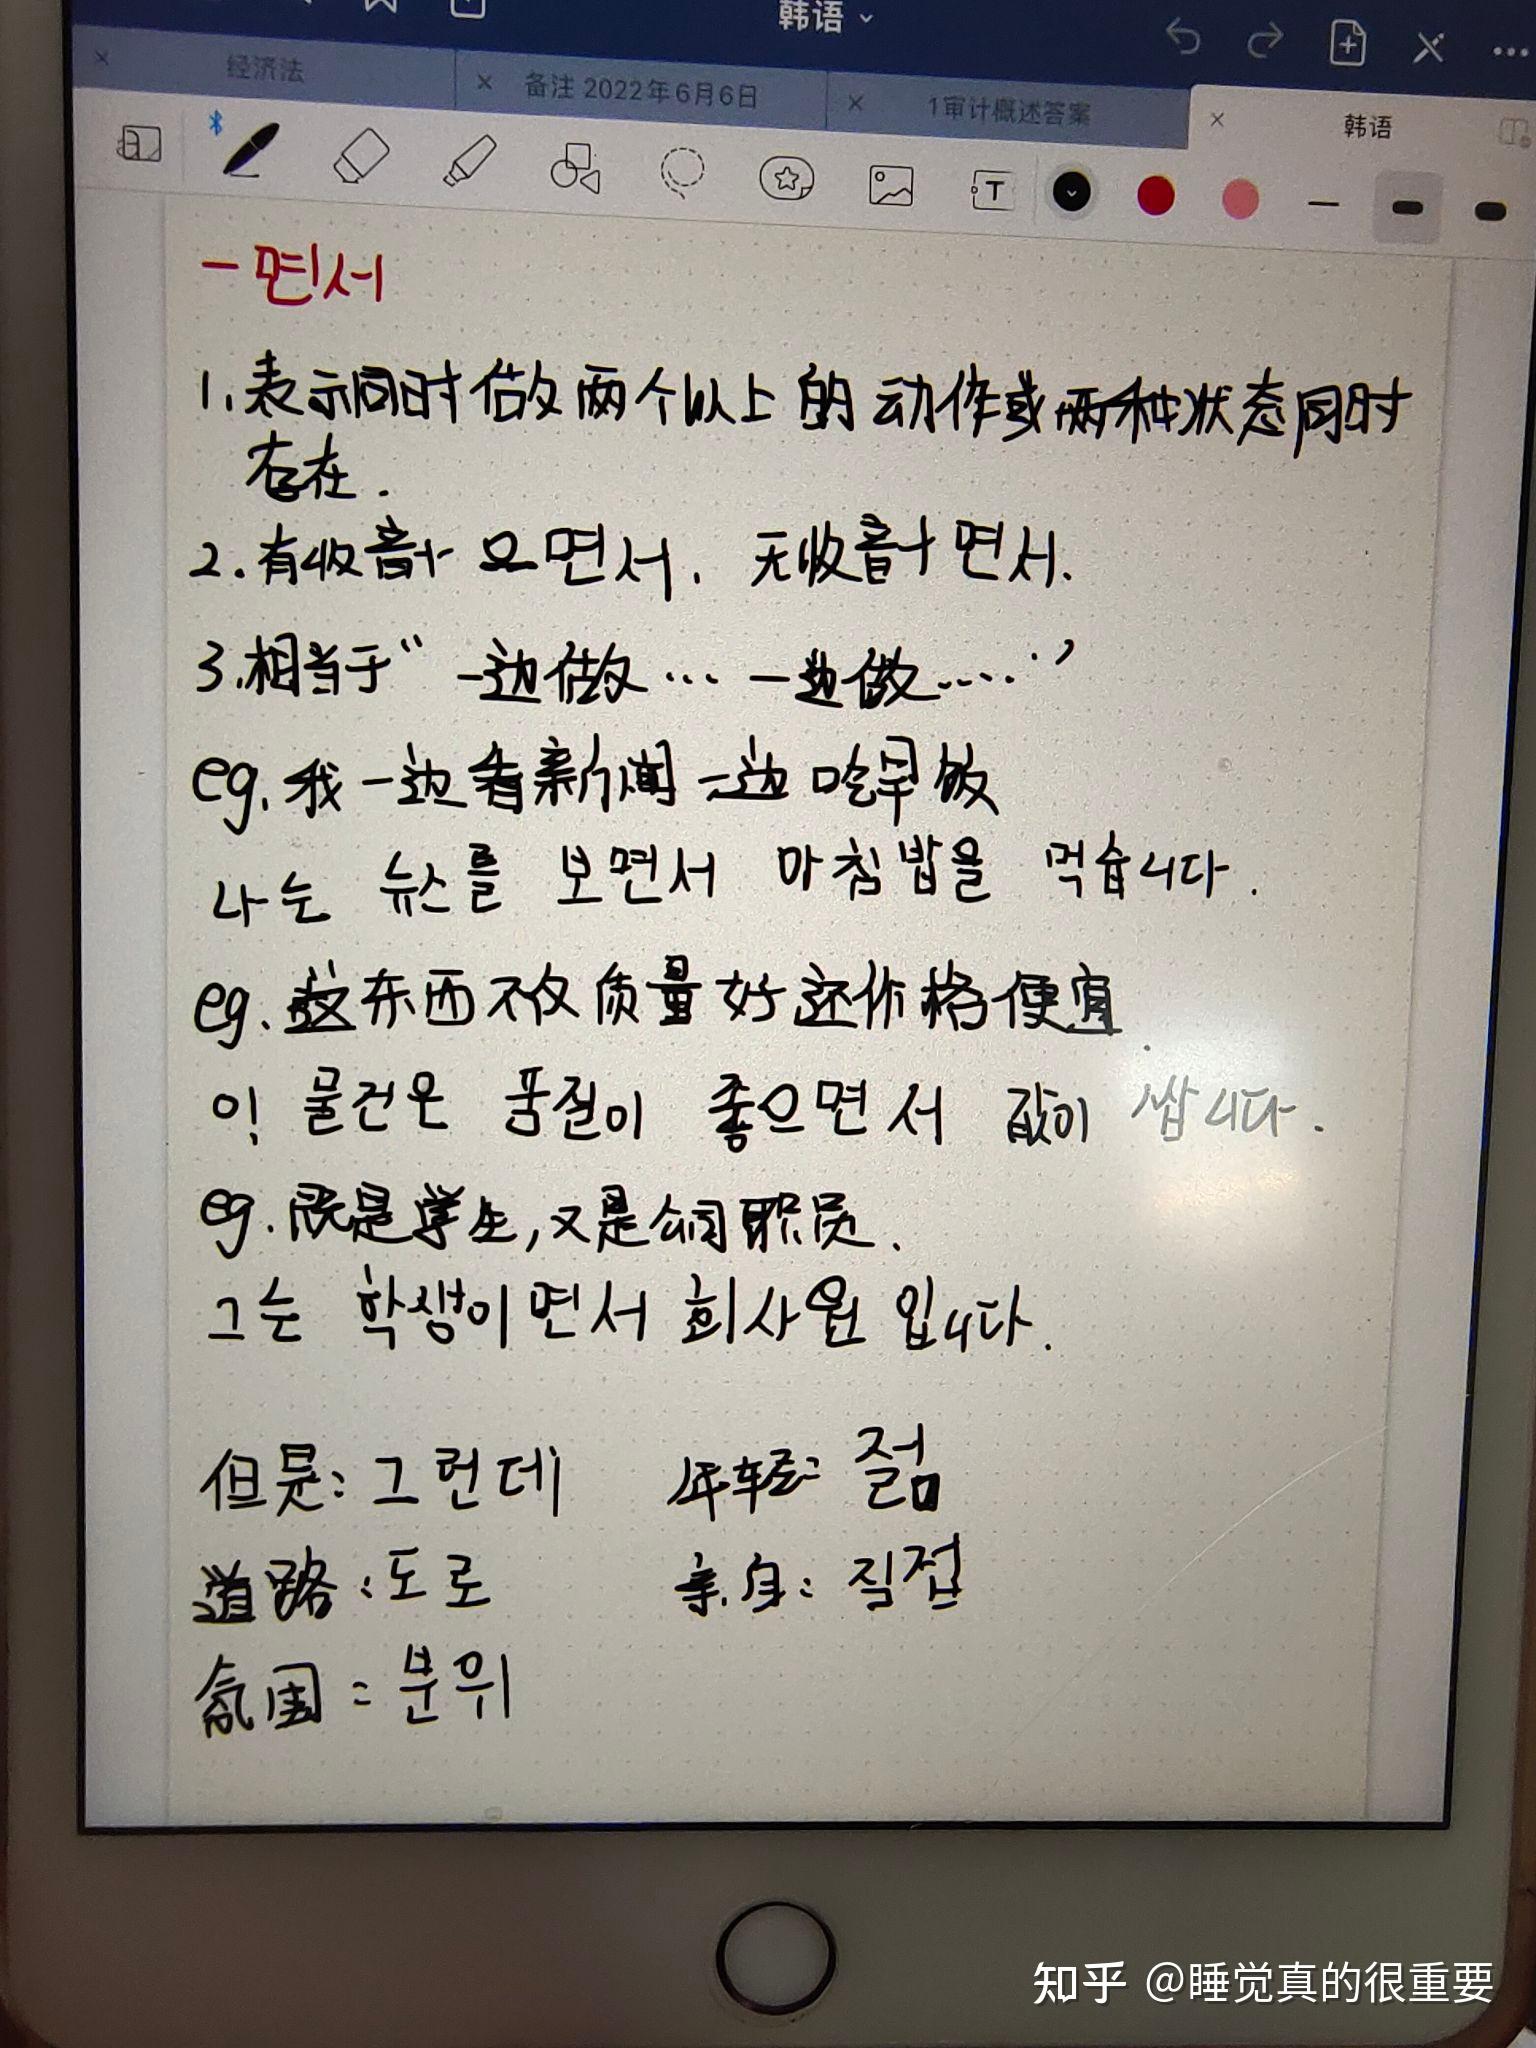 韩语
经济法
备注 2022年6月6日
1审计概述答案
韩语
T
-면서
1.表示同时做两个以上的动作或两种状态同时
存在.
2.有收音+으면서. 无收音+면서.
3.相当于“一边做…一边做……”
eg.我一边看新闻一边吃早饭
나는 뉴스를 보면서 아침밥을 먹습니다.
eg.这东西不仅质量好还价格便宜.
이 물건은 품질이 좋으면서 값이 쌉니다.
eg.既是学生,又是公司职员.
그는 학생이면서 회사원입니다.
但是:그런데 年轻:젊
道路:도로 亲自:직접
氛围:분위
知乎 @睡觉真的很重要